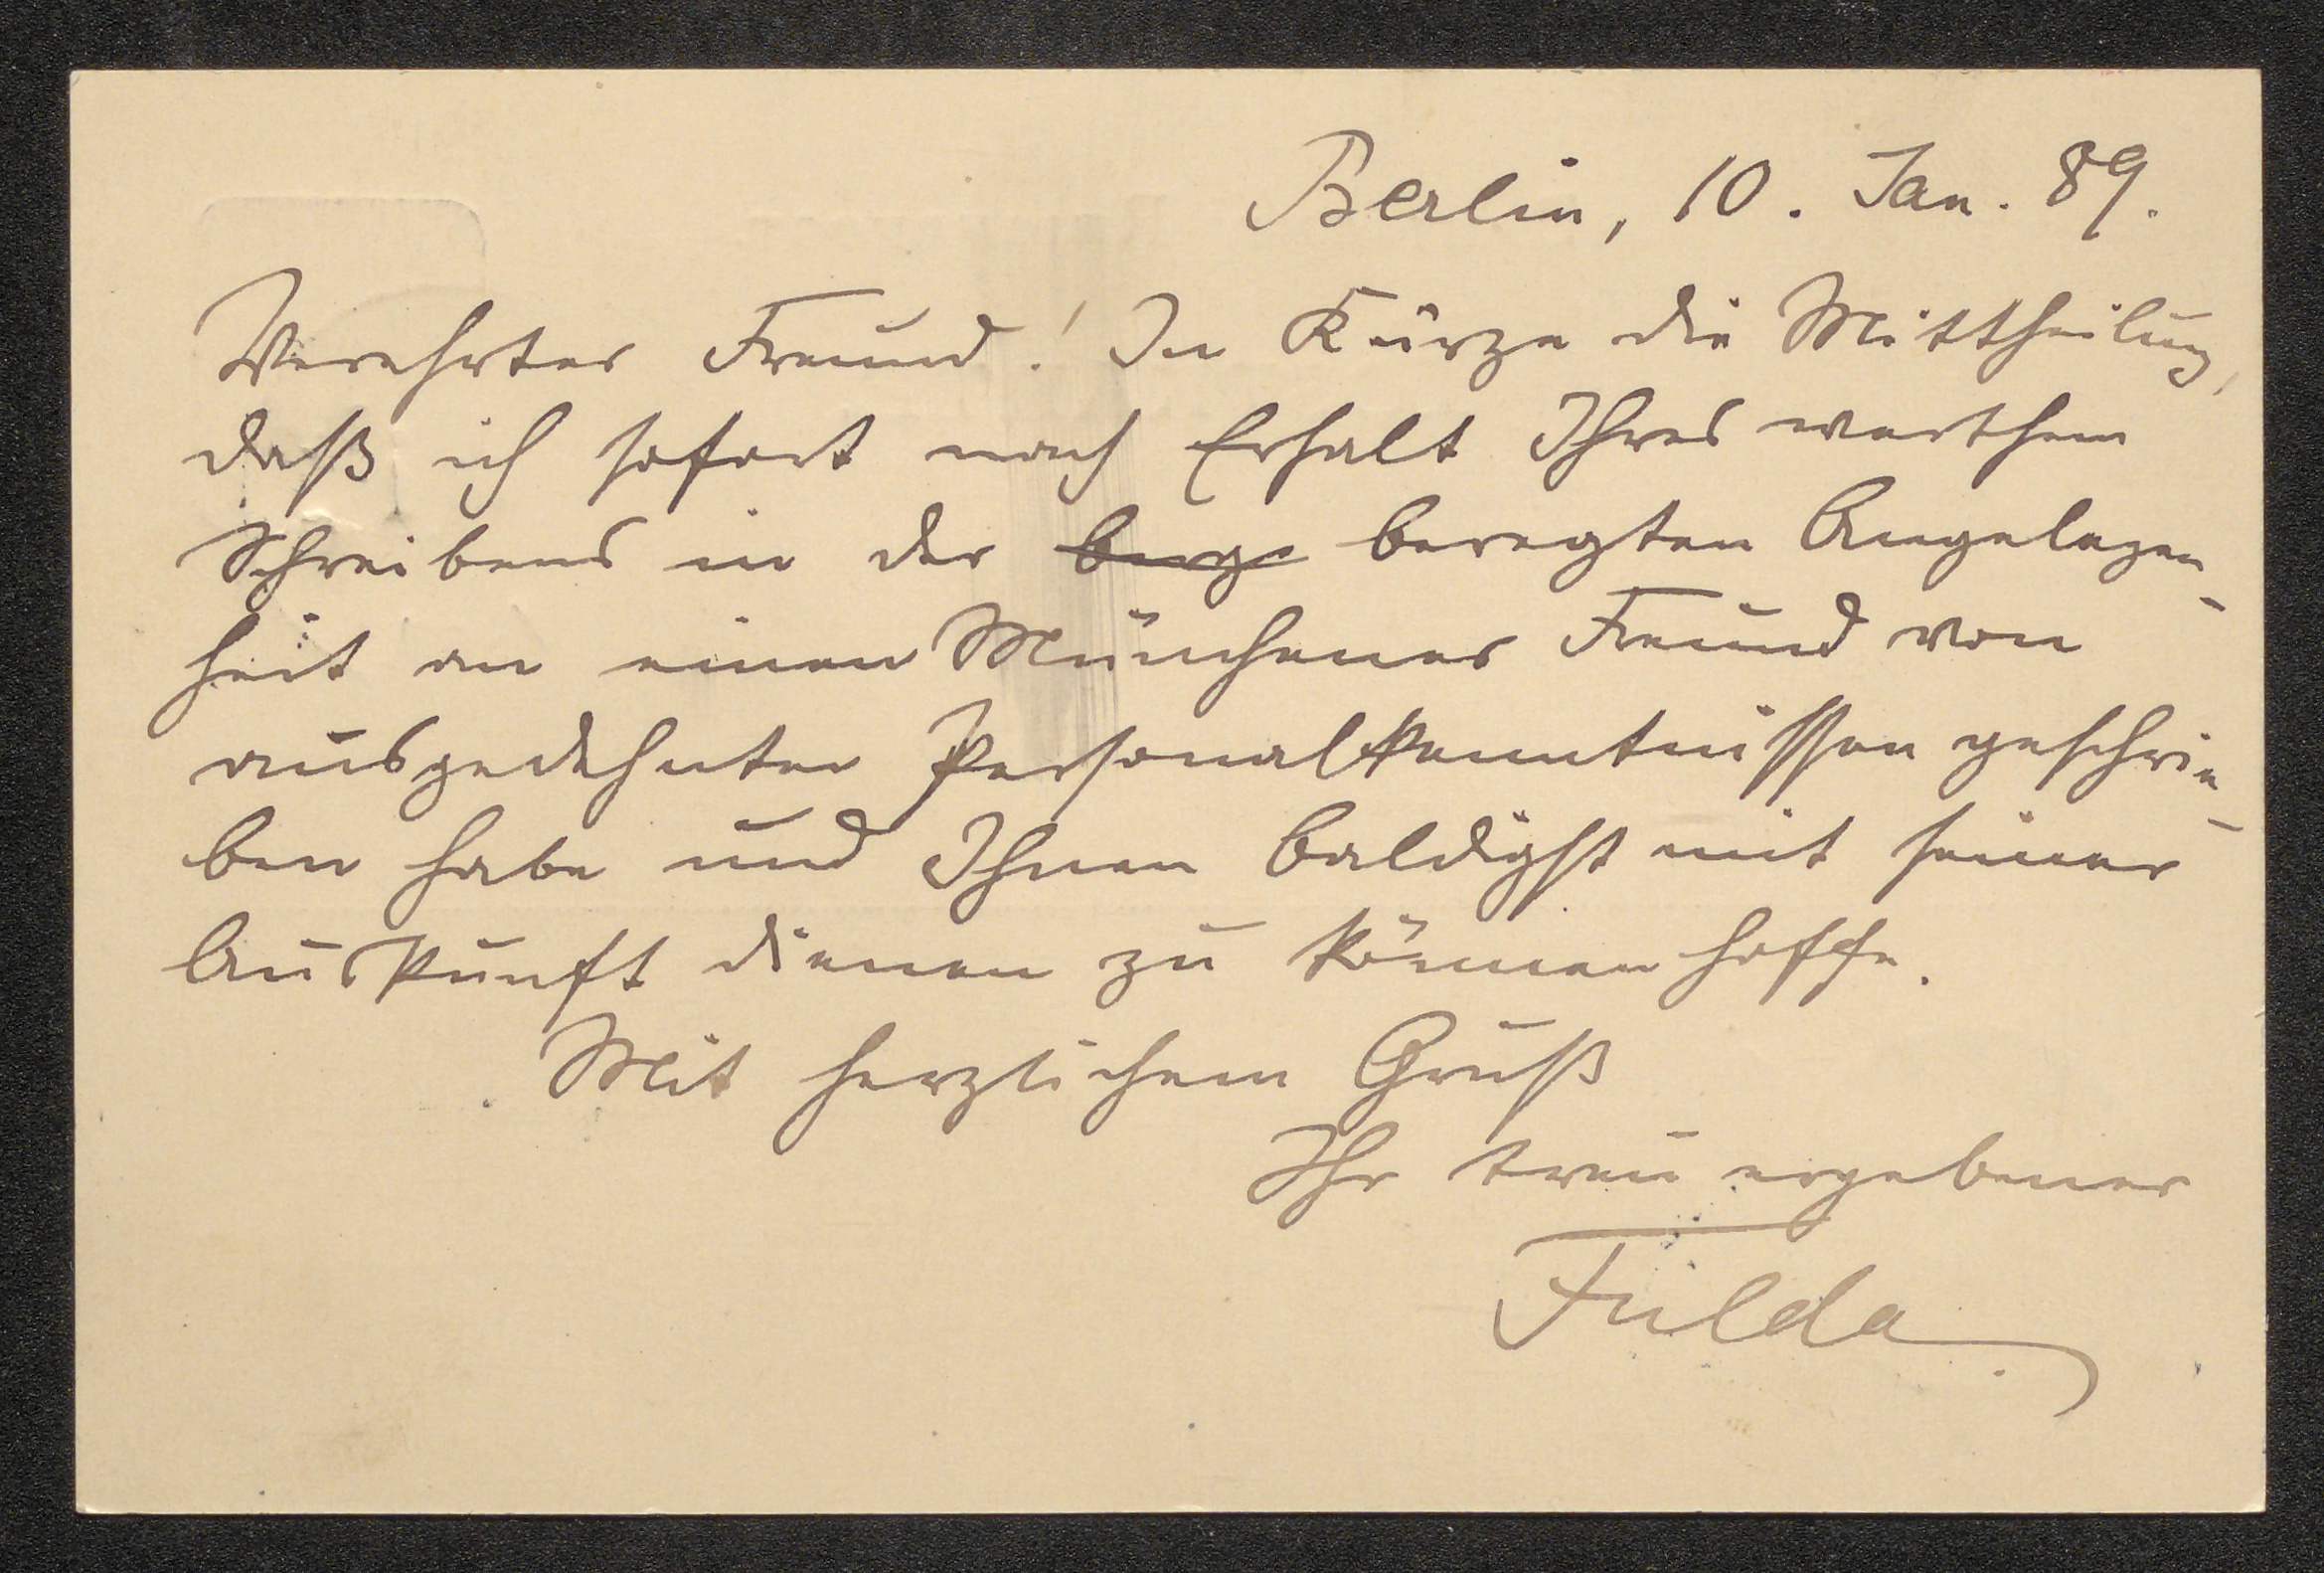 Berlin, 10. Jan. 89.
Verehrter Freund! In Kürze die Mittheilung,
daß ich sofort nach Erhalt Ihres werthen
Schreibens in der beregten Angelegen-
heit an einen Münchener Freund von
ausgedehnten Personalkenntnissen geschrie-
ben habe und Ihnen baldigst mit seiner
Auskunft dienen zu können hoffe.
Mit herzlichem Gruß
Ihr treu ergebener
Fulda